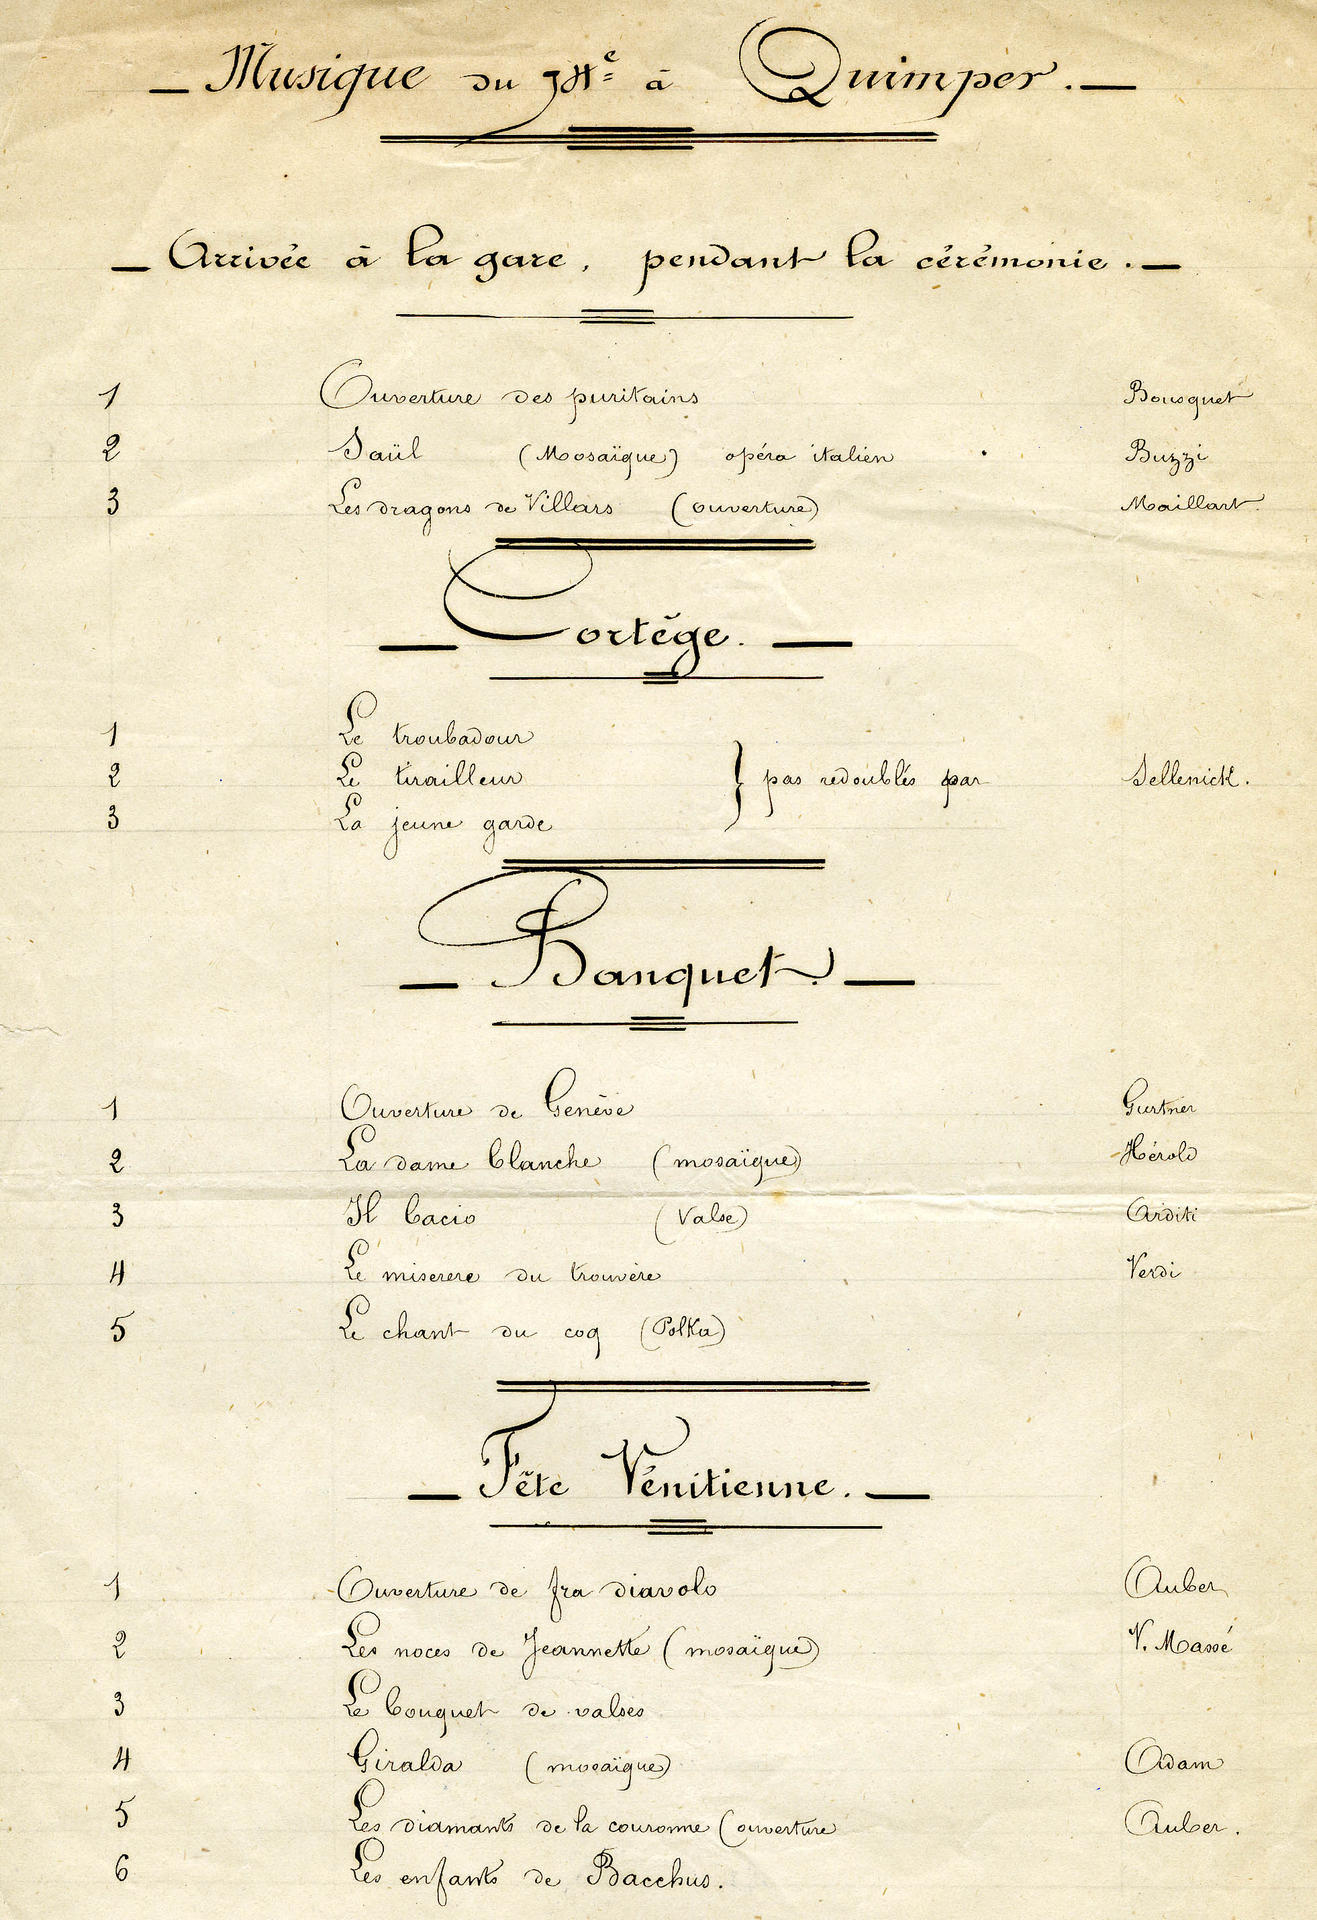 Musique du e à Quimper.
Arrivée à la gare, pendant la cérémonie.
1 Ouverture des puritains Bousquet
2 Saül (Mosaïque) opéra italien Buzzi
3 Les dragons de Villars (ouverture) Maillart.
Cortège.
1 Le troubadour
2 Le tirailleur } pas redoublés par Sellenick.
3 La jeune garde
Banquet.
1 Ouverture de Genève Gurtner
2 La dame blanche (mosaïque) Hérold
3 Il bacio (Valse) Arditi
4 Le miserere du trouvère Verdi
5 Le chant du coq (Polka)
Fête Vénitienne.
1 Ouverture de fra diavolo Auber
2 Les noces de Jeannette (mosaïque) V. Massé
3 Le bouquet de valses
4 Giralda (mosaïque) Adam
5 Les diamants de la couronne (ouverture Auber.
6 Les enfants de Bacchus.